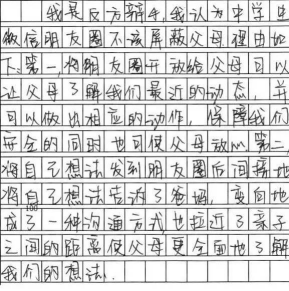 我是反方辩手,我认为中学生
微信朋友圈不该屏蔽父母理由如
下:第一,将朋友圈开放给父母可以
让父母了解我们最近的动态,并
可以做出相应的动作,保障我们
安全的同时也可使父母放心.第二,
将自己想法发到朋友圈后间接地
将自己想法告诉了爸妈,变向地
100
成了一种沟通方式也拉近了亲子
之间的距离使父母更全面地了解
我们的想法.